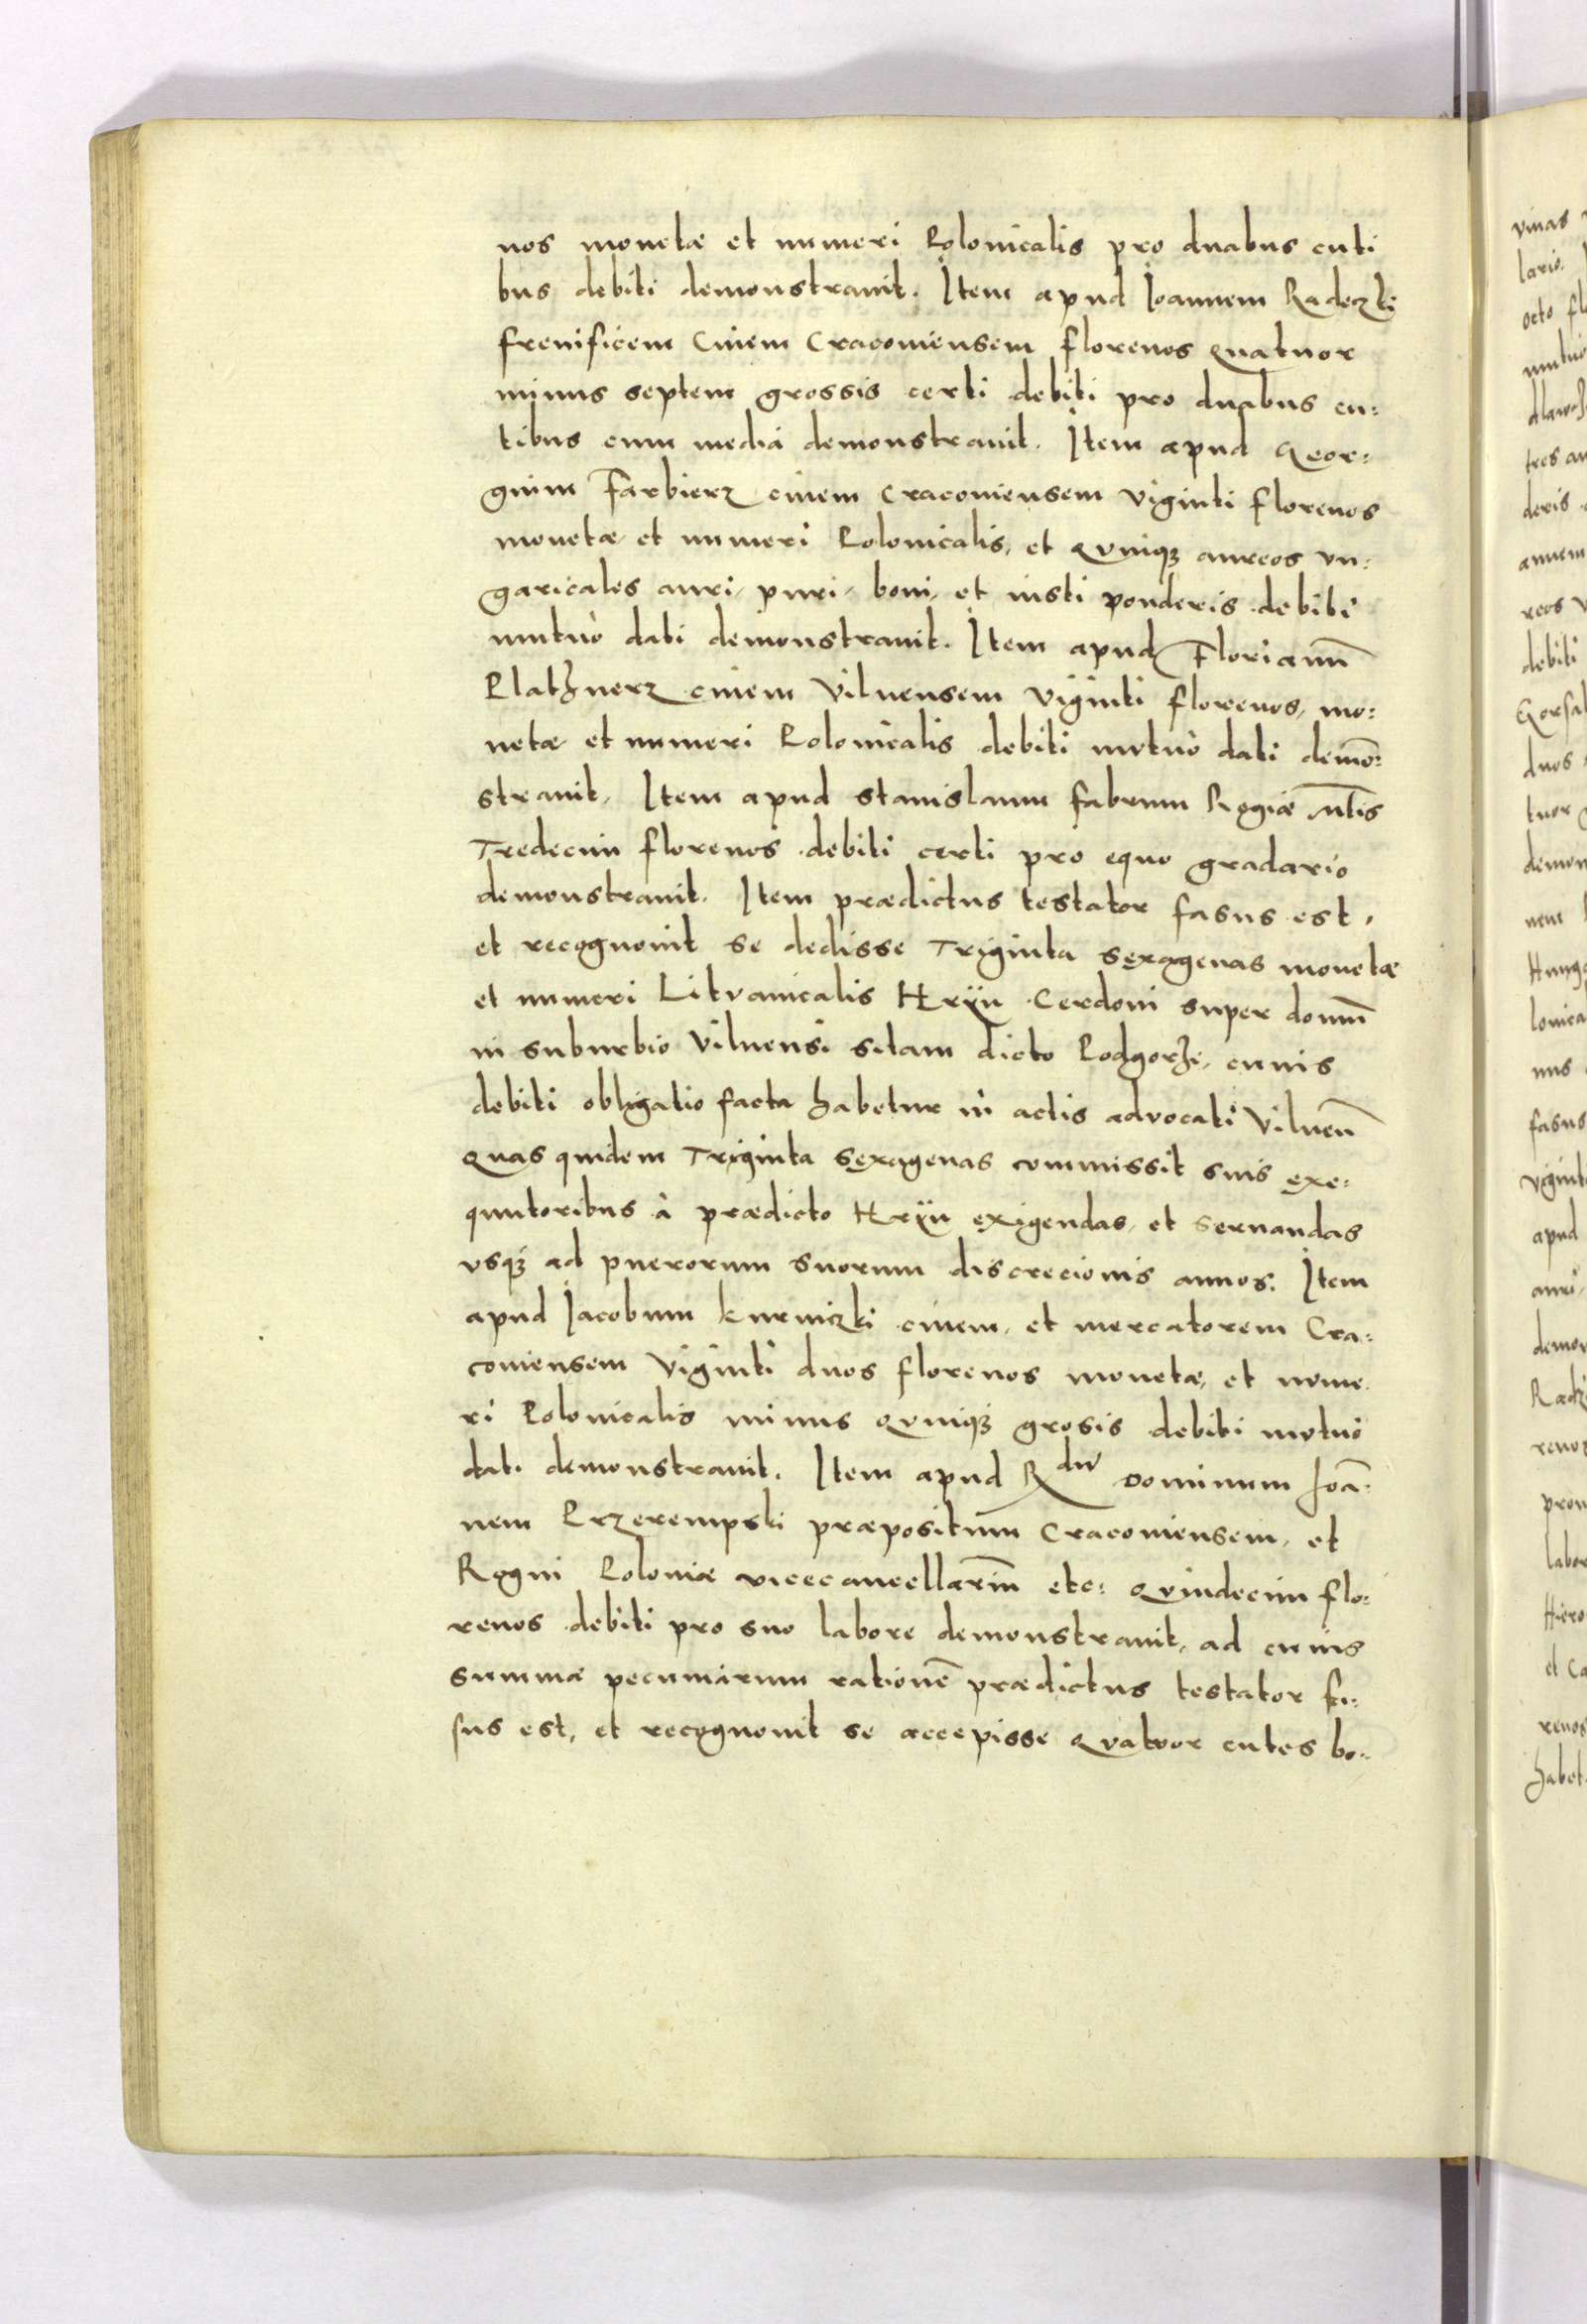 nos monetæ et numeri Polonicalis pro duabus cuti
bus debiti demonstrauit. Item apud Joannem Radeczki
frenificem Ciuem Cracouiensem florenos quatuor
minus septem grossis certi debiti pro duabus cu:
tibus cum media demonstrauit. Item apud Geor:
gium Farbierz ciuem Cracouiensem viginti florenos
monetæ et numeri Polonicalis, et quinqȝ aureos vn:
garicales auri, puri, boni, et iusti ponderis debiti
mutuò dati demonstrauit. Item apud Florianū
Platznerz ciuem Vilnensem viginti florenos, mo:
netæ et numeri Polonicalis debiti mutuò dati demō:
strauit, Item apud stanislaum fabrum Regiæ Mtis
Tredecim florenos debiti certi pro equo gradario
demonstrauit. Item prædictus testator fasus est,
et recognouit se dedisse Triginta sexagenas monetæ
et numeri Litvanicalis Hryn Cerdoni super domū
in suburbio Vilnensi sitam dicto Podgorze, cuius
debiti obligatio facta habetur in actis advocati Vilneñ
quas quidem Triginta sexagenas commissit suis exe:
quutoribus à prædicto Hryn exigendas, et seruandas
vsqȝ ad puerorum suorum discrecionis annos. Item
apud Jacobum kurniczki ciuem, et mercatorem Cra:
couiensem viginti duos florenos monetæ, et nume
ri Polonicalis minus quinqȝ grosis debiti mutuo
dati demonstrauit. Item apud Rdm Dominum Joā:
nem Przerempski præpositum Cracouiensem, et
Regni Poloniæ vicecancellariū etc: quindecim flo:
renos debiti pro suo labore demonstrauit, ad cuius
summæ pecuniarum rationē prædictus testator fa:
sus est, et recognouit se accepisse quatuor cutes bo: